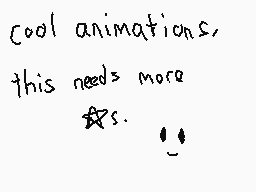 cool animations,
this needs more
☆s.